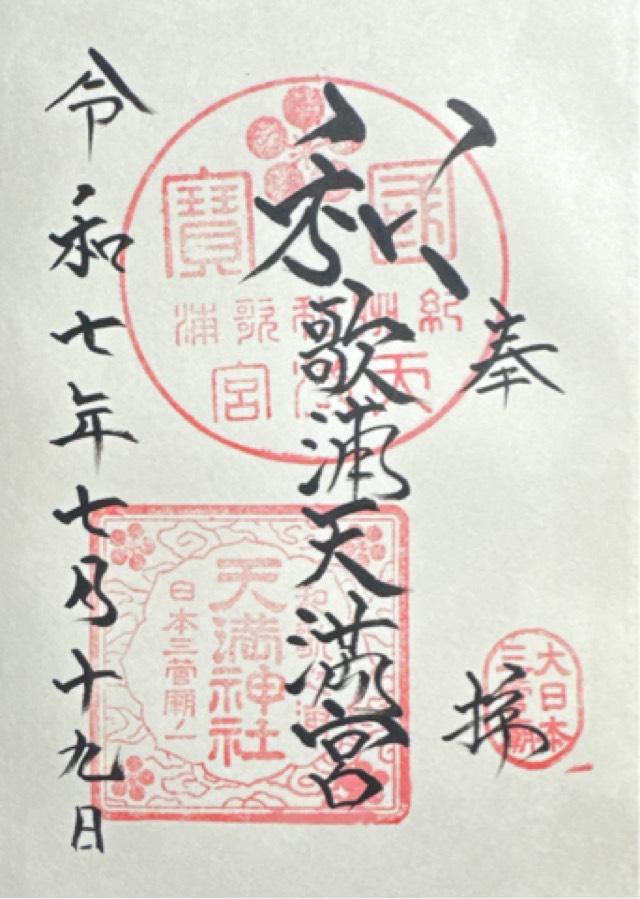 奉拝
和歌浦天満宮
令和七年七月十九日
國寶
紀州
和歌浦
天満宮
天満神社
日本三菅廟ノ一
大日本
三菅廟ノ一